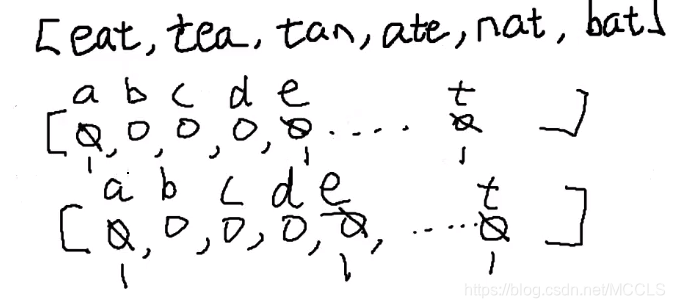 [eat, tea, tan, ate, nat, bat]
a b c d e t
[0, 0, 0, 0, 0 .... 0 ]
1 1 1
a b c d e t
[0, 0, 0, 0, 0, ..... 0 ]
1 1 1
https://blog.csdn.net/MCCLS